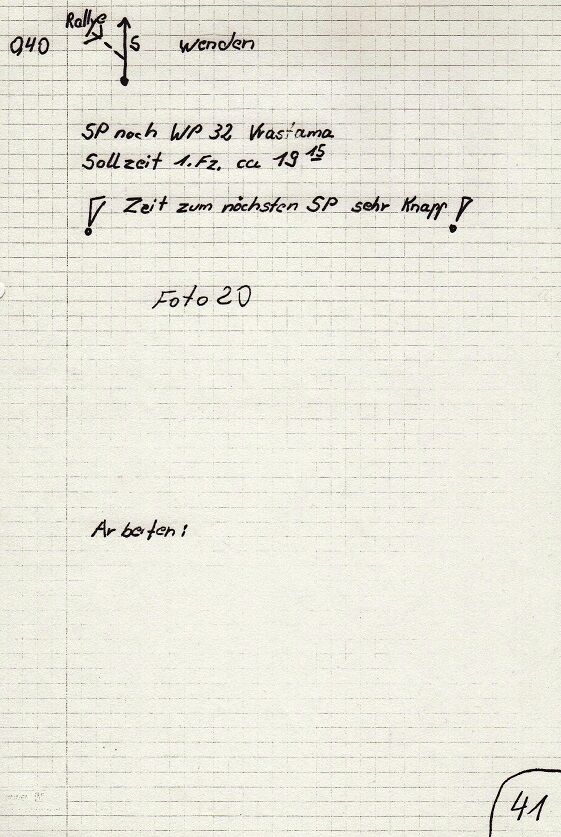 Rallye
040 S wenden
SP nach WP 32 Vrastama
Sollzeit 1.Fz. ca 19 15
! Zeit zum nächsten SP sehr Knapp !
Foto 20
Arbeiten:
41